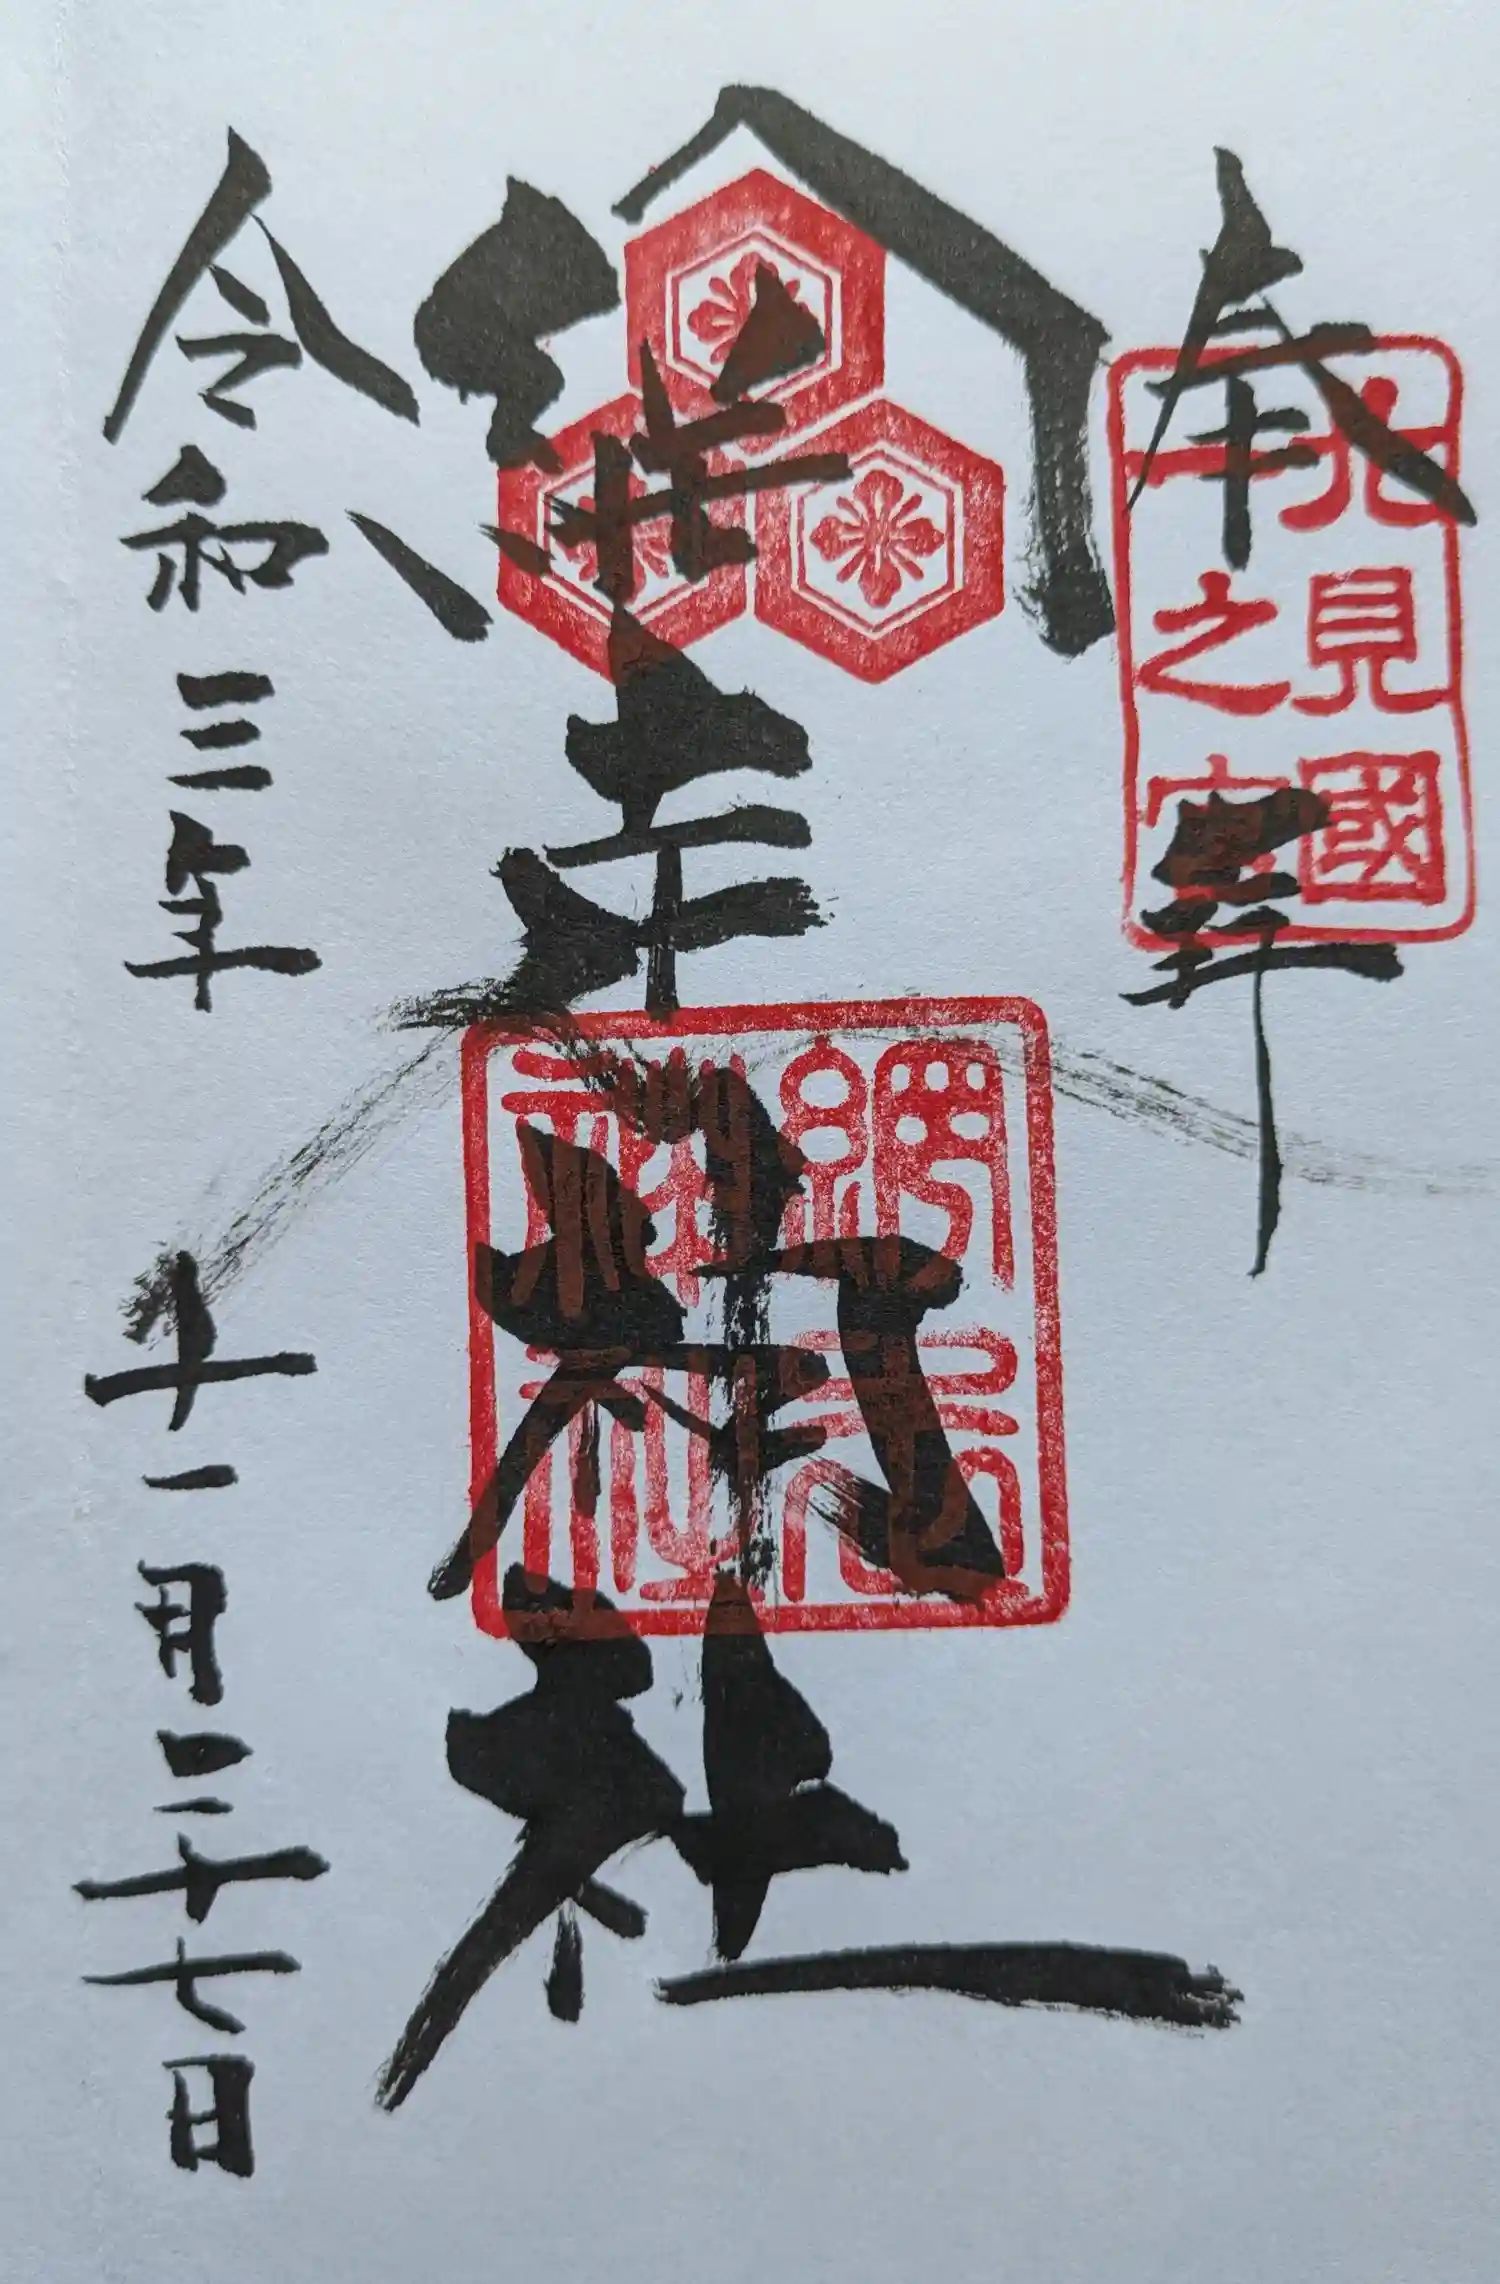 奉拝
北見國
一之宮
網走神社
網走
神社
令和三年十一月二十七日